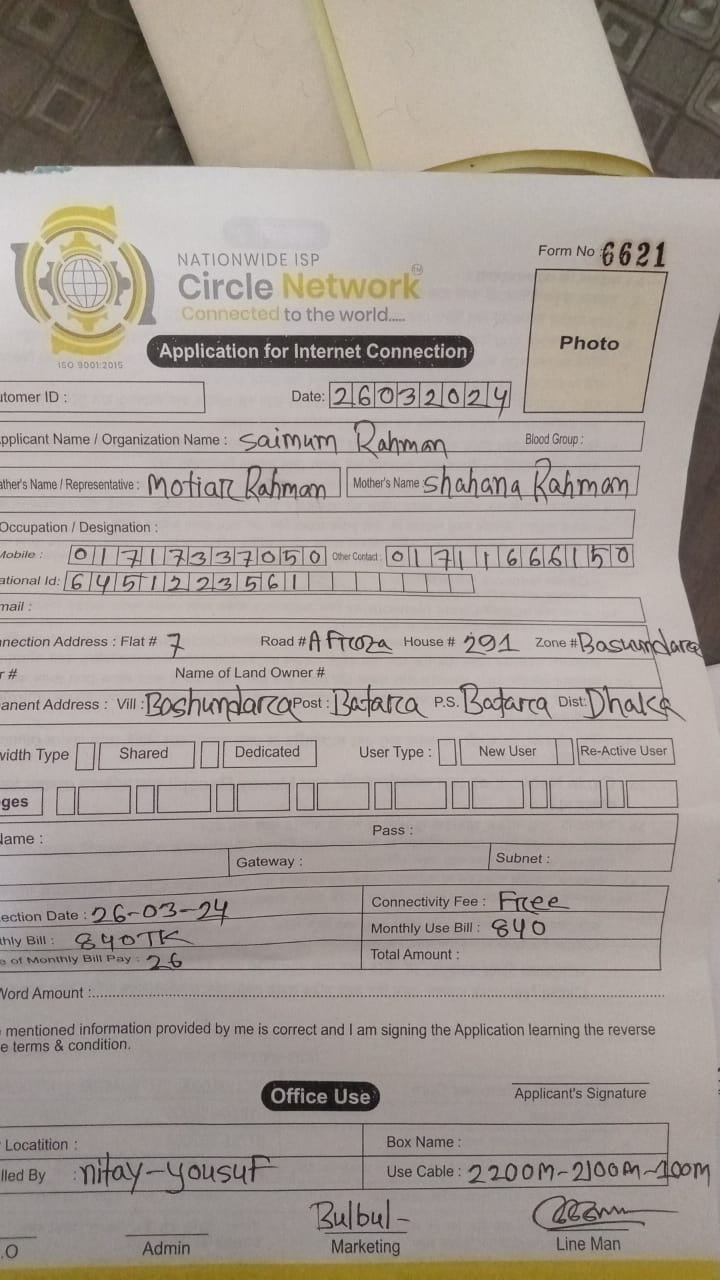 NATIONWIDE ISP
Circle Network TM
Connected to the world.....
ISO 9001:2015
Form No 6621
Photo
Application for Internet Connection
tomer ID :
Date: 26032024
pplicant Name / Organization Name : Saimum Rahman Blood Group :
ather's Name / Representative : Motiar Rahman Mother's Name Shahana Rahman
Occupation / Designation :
Mobile : 01717337050 Other Contact : 01711666150
ational Id: 6451223561
mail :
nnection Address : Flat # 7 Road # Afroza House # 291 Zone # Basundara
r # Name of Land Owner #
anent Address : Vill : Bashundara Post : Batara P.S. Batara Dist: Dhaka
width Type Shared Dedicated User Type : New User Re-Active User
ges
Name : Pass :
Gateway : Subnet :
ection Date : 26-03-24 Connectivity Fee : Free
thly Bill : 840TK Monthly Use Bill : 840
e of Monthly Bill Pay : 26 Total Amount :
Word Amount :
mentioned information provided by me is correct and I am signing the Application learning the reverse
e terms & condition.
Office Use
Applicant's Signature
Locatition : Box Name :
lled By : nitay-yousuf Use Cable : 2200M-2100M-100m
Bulbul-
.O Admin Marketing Line Man